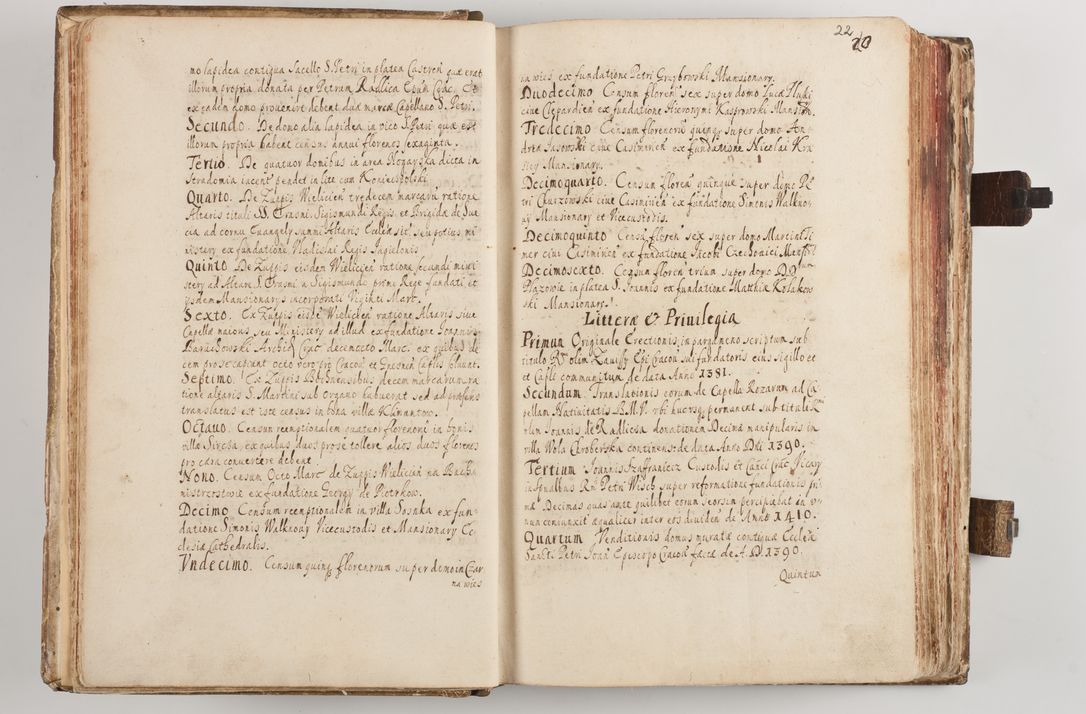 mo lapidea contigua Sacello S. Petri in platea Castren quæ erat
illorum propria donata per Petrum Radlica Epūn Crac.
ex eadem domo provenire debent duæ marcæ Capellano S. Petri.
Secundo. De domo alia lapidea in vico S. Petri quæ est
illorum propria habent census annui florenos sexaginta.
Tertio De quatuor domibus in area Rogawska dicta in
Stradomia iacent pendet in lite cum Koniecpolski
Quarto. De Zuppis Wielicien tredecem marcarū ratione
Altaris tituli SS. Erasmi, Sigismundi Regis, et Brigidæ de Sue
cia ad cornu Euangely summi Altaris Ecclesiæ sit, seu potius mi
nistery ex fundatione Vladislai Regis Jagielonis
Quinto De Zuppis eisdem Wielicien ratione secundi mini
stery ad Altare S. Erasmi a Sigismundo primo Rege fundati et
ysdem Mansionarys incorporati Viginti Marc.
Sexto. Ex Zuppis eisdē Wielicien ratione Altaris siue
Capellæ maioris seu Ministery ad illud ex fundatione Joannis
Archid Crac decemocto Marc. ex quibus de
cem pro se capiunt octo vero pro Cracou et Gnesnen Caplis soluunt.
Septimo. Ex Zuppis Bochnensibus decem marcarum ra
tione altaris S. Martini sub organo habuerat sed ad præsens
translatus est iste census in bona villæ Klimantow.
Octauo. Censum reemptionalem quatuor florenorū in bonis
villæ Sircza, ex quibus duos pro se tollere alios duos florenos
pro cæra conuertere debent
Nono. Censum Octo Marc de Zuppis Wielicien na Bach
mistrzostwie ex fundatione Georgy de Piotrkow.
Decimo Censum reemptionalem in villa Sosnka ex fun-
datione Simonis Walknowy Vicecustodis et Mansionary Ec
clesiæ Cathedralis.
Vndecimo. Censum quinq florenorum super domo in Czar
na wies
22
20
na wies ex fundatione Petri Grzybowski Mansionary.
Duodecimo Censum floren sex super domo Lucæ Fluki
ciue Clepardien ex fundatione Hieronymi Kasprowski Mansion.
Tredecimo Censum florenorū quinq super domo An
dreæ Sasowski ciue Casimirien ex fundatione Nicolai Kra
siey Mansionary.
Decimoquarto. Censum floren quinque super domo Pe
tri Churzowski ciue Casimirien ex fundatione Simonis Walknow
ny Mansionary et Vicecustodis.
Decimoquinto Censū floren sex super domo Martini Ti
mer ciuis Casimirien ex fundatione Jacobi Czechonici Mans
Decimosexto. Censum floren trium super domo D.
Plazowie in platea S. Joannis ex fundatione Matthiæ Kolakow
ski Mansionary.
Litteræ & Priuilegia
Primum Originale Erectionis in pargameno scriptum sub
titulo Rmi olim Zauissy Epi Cracou sui fundatoris eius sigillo et
et Capli communitum de data Anno 1381.
Secundum. Translationis eorum de Capella Rozarum ad Ca
pellam Natiuitatis B.M.V. vbi hucusq permanent sub titulo Rmi
olim Joannis de Radlicza donationem Decimæ manipularis in
villa Wola Chroberska continens de data Anno Dni 1390.
Tertium Joannis Szaffranicz Custodis et Cancri Crac Vicary
in spualibus Rmi Petri Wisch super reformatione fundationis pri
mæ Decimas quas ante quilibet eorum seorsim percipiebat in v
num coniunxit æqualiter inter eos diuidend de Anno 1410.
Quartum Venditionis domus muratæ contiguæ Ecclen
Sancti Petri Joan Episcopo Cracou factæ de A. D 1390.
Quintum